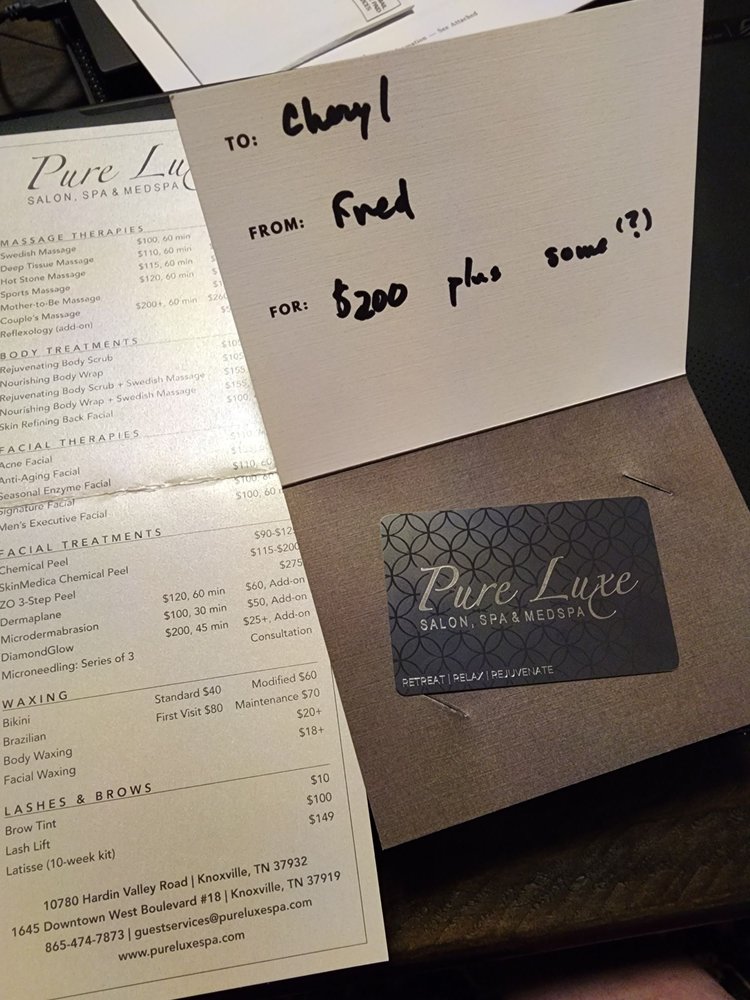 Pure Lu
SALON, SPA & MEDSPA
MASSAGE THERAPIES
Swedish Massage $100, 60 min
Deep Tissue Massage $110, 60 min
Hot Stone Massage $115, 60 min
Sports Massage $120, 60 min
Mother-to-Be Massage
Couple's Massage $200+, 60 min
Reflexology (add-on)
BODY TREATMENTS
Rejuvenating Body Scrub
Nourishing Body Wrap
Rejuvenating Body Scrub + Swedish Massage
Nourishing Body Wrap + Swedish Massage
Skin Refining Back Facial
FACIAL THERAPIES
Acne Facial
Anti-Aging Facial
Seasonal Enzyme Facial
Signature Facial
Men's Executive Facial
FACIAL TREATMENTS
Chemical Peel
SkinMedica Chemical Peel $115-$200
ZO 3-Step Peel $275
Dermaplane $120, 60 min $60, Add-on
Microdermabrasion $100, 30 min $50, Add-on
DiamondGlow $200, 45 min $25+, Add-on
Microneedling: Series of 3 Consultation
WAXING
Bikini Standard $40 Modified $60
Brazilian First Visit $80 Maintenance $70
Body Waxing $20+
Facial Waxing $18+
LASHES & BROWS
Brow Tint $10
Lash Lift $100
Latisse (10-week kit) $149
10780 Hardin Valley Road | Knoxville, TN 37932
1645 Downtown West Boulevard #18 | Knoxville, TN 37919
865-474-7873 | guestservices@pureluxespa.com
www.pureluxespa.com
TO: Cheryl
FROM: Fred
FOR: $200 plus some (?)
Pure Luxe
SALON, SPA & MEDSPA
RETREAT | RELAX | REJUVENATE